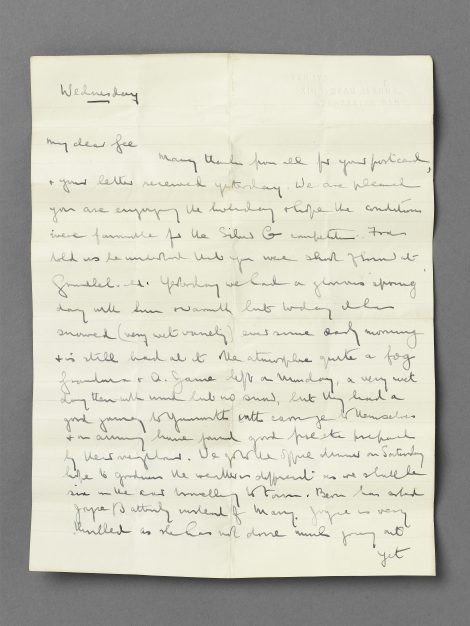 Wednesday
My dear Gee
Many thanks from all for your postcard,
& your letter received yesterday. We are pleased
you are enjoying the holiday & hope the conditions
were favourable for the Silver G competition.
told us he understood that you were short of
Yesterday we had a glorious spring
day with sun & warmth but today it has
snowed (very wet variety) ever since early morning
& is still hard at it & the atmosphere quite a fog
Grandma & A. left on Monday, a very wet
day then with wind but no snow, but they had a
good journey to with carriage to themselves
& on arriving home found good prepared
by their neighbour. We go to the dinner on Saturday
hope to goodness the weather is different as we shall be
six in the car travelling to Town. has asked
Joyce instead of Mary. Joyce is very
thrilled as she has not done much going out
yet